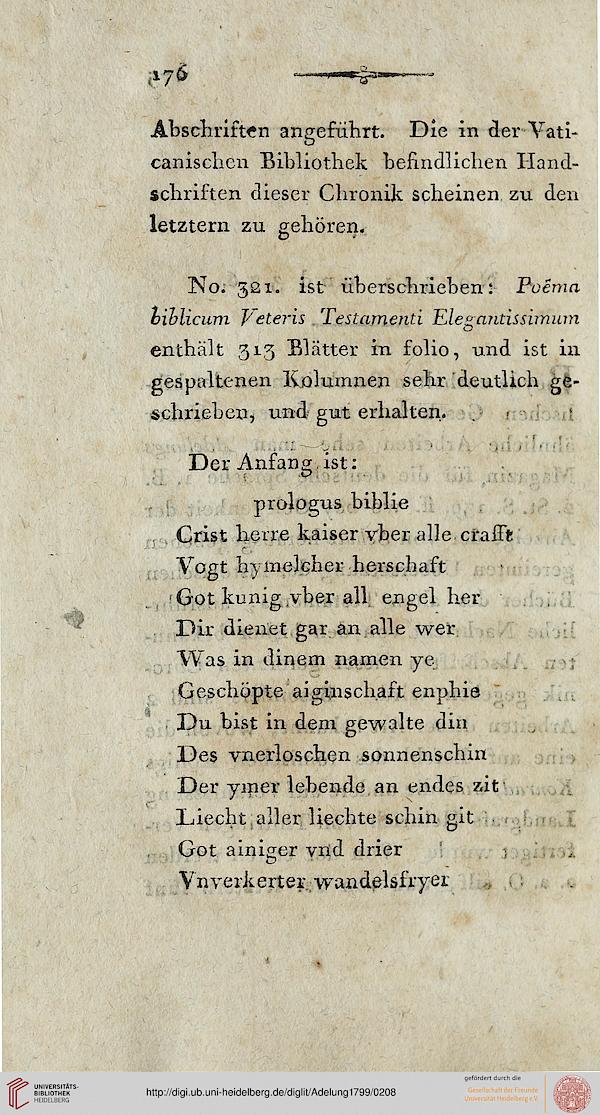 176
Abschriften angeführt. Die in der Vati-
canischen Bibliothek befindlichen Hand-
schriften dieser Chronik scheinen zu den
letztern zu gehören.
No. 321. ist überschrieben: Poëma
biblicum Veteris Testamenti Elegantissimum
enthält 313 Blätter in folio, und ist in
gespaltenen Kolumnen sehr deutlich ge-
schrieben, und gut erhalten.
Der Anfang ist:
prologus biblie
Crist herre kaiser vber alle crafft
Vogt hymelcher herschaft
Got kunig vber all engel her
Dir dienet gar an alle wer
Was in dinem namen ye
Geschöpte aiginschaft enphie
Du bist in dem gewalte din
Des vnerloschen sonnenschin
Der ymer lebende an endes zit
Liecht aller liechte schin git
Got ainiger vnd drier
Vnverkerter wandelsfryer
UNIVERSITÄTS-
BIBLIOTHEK
HEIDELBERG
http://digi.ub.uni-heidelberg.de/diglit/Adelung1799/0208
gefördert durch die
Gesellschaft der Freunde
Universität Heidelberg e.V.